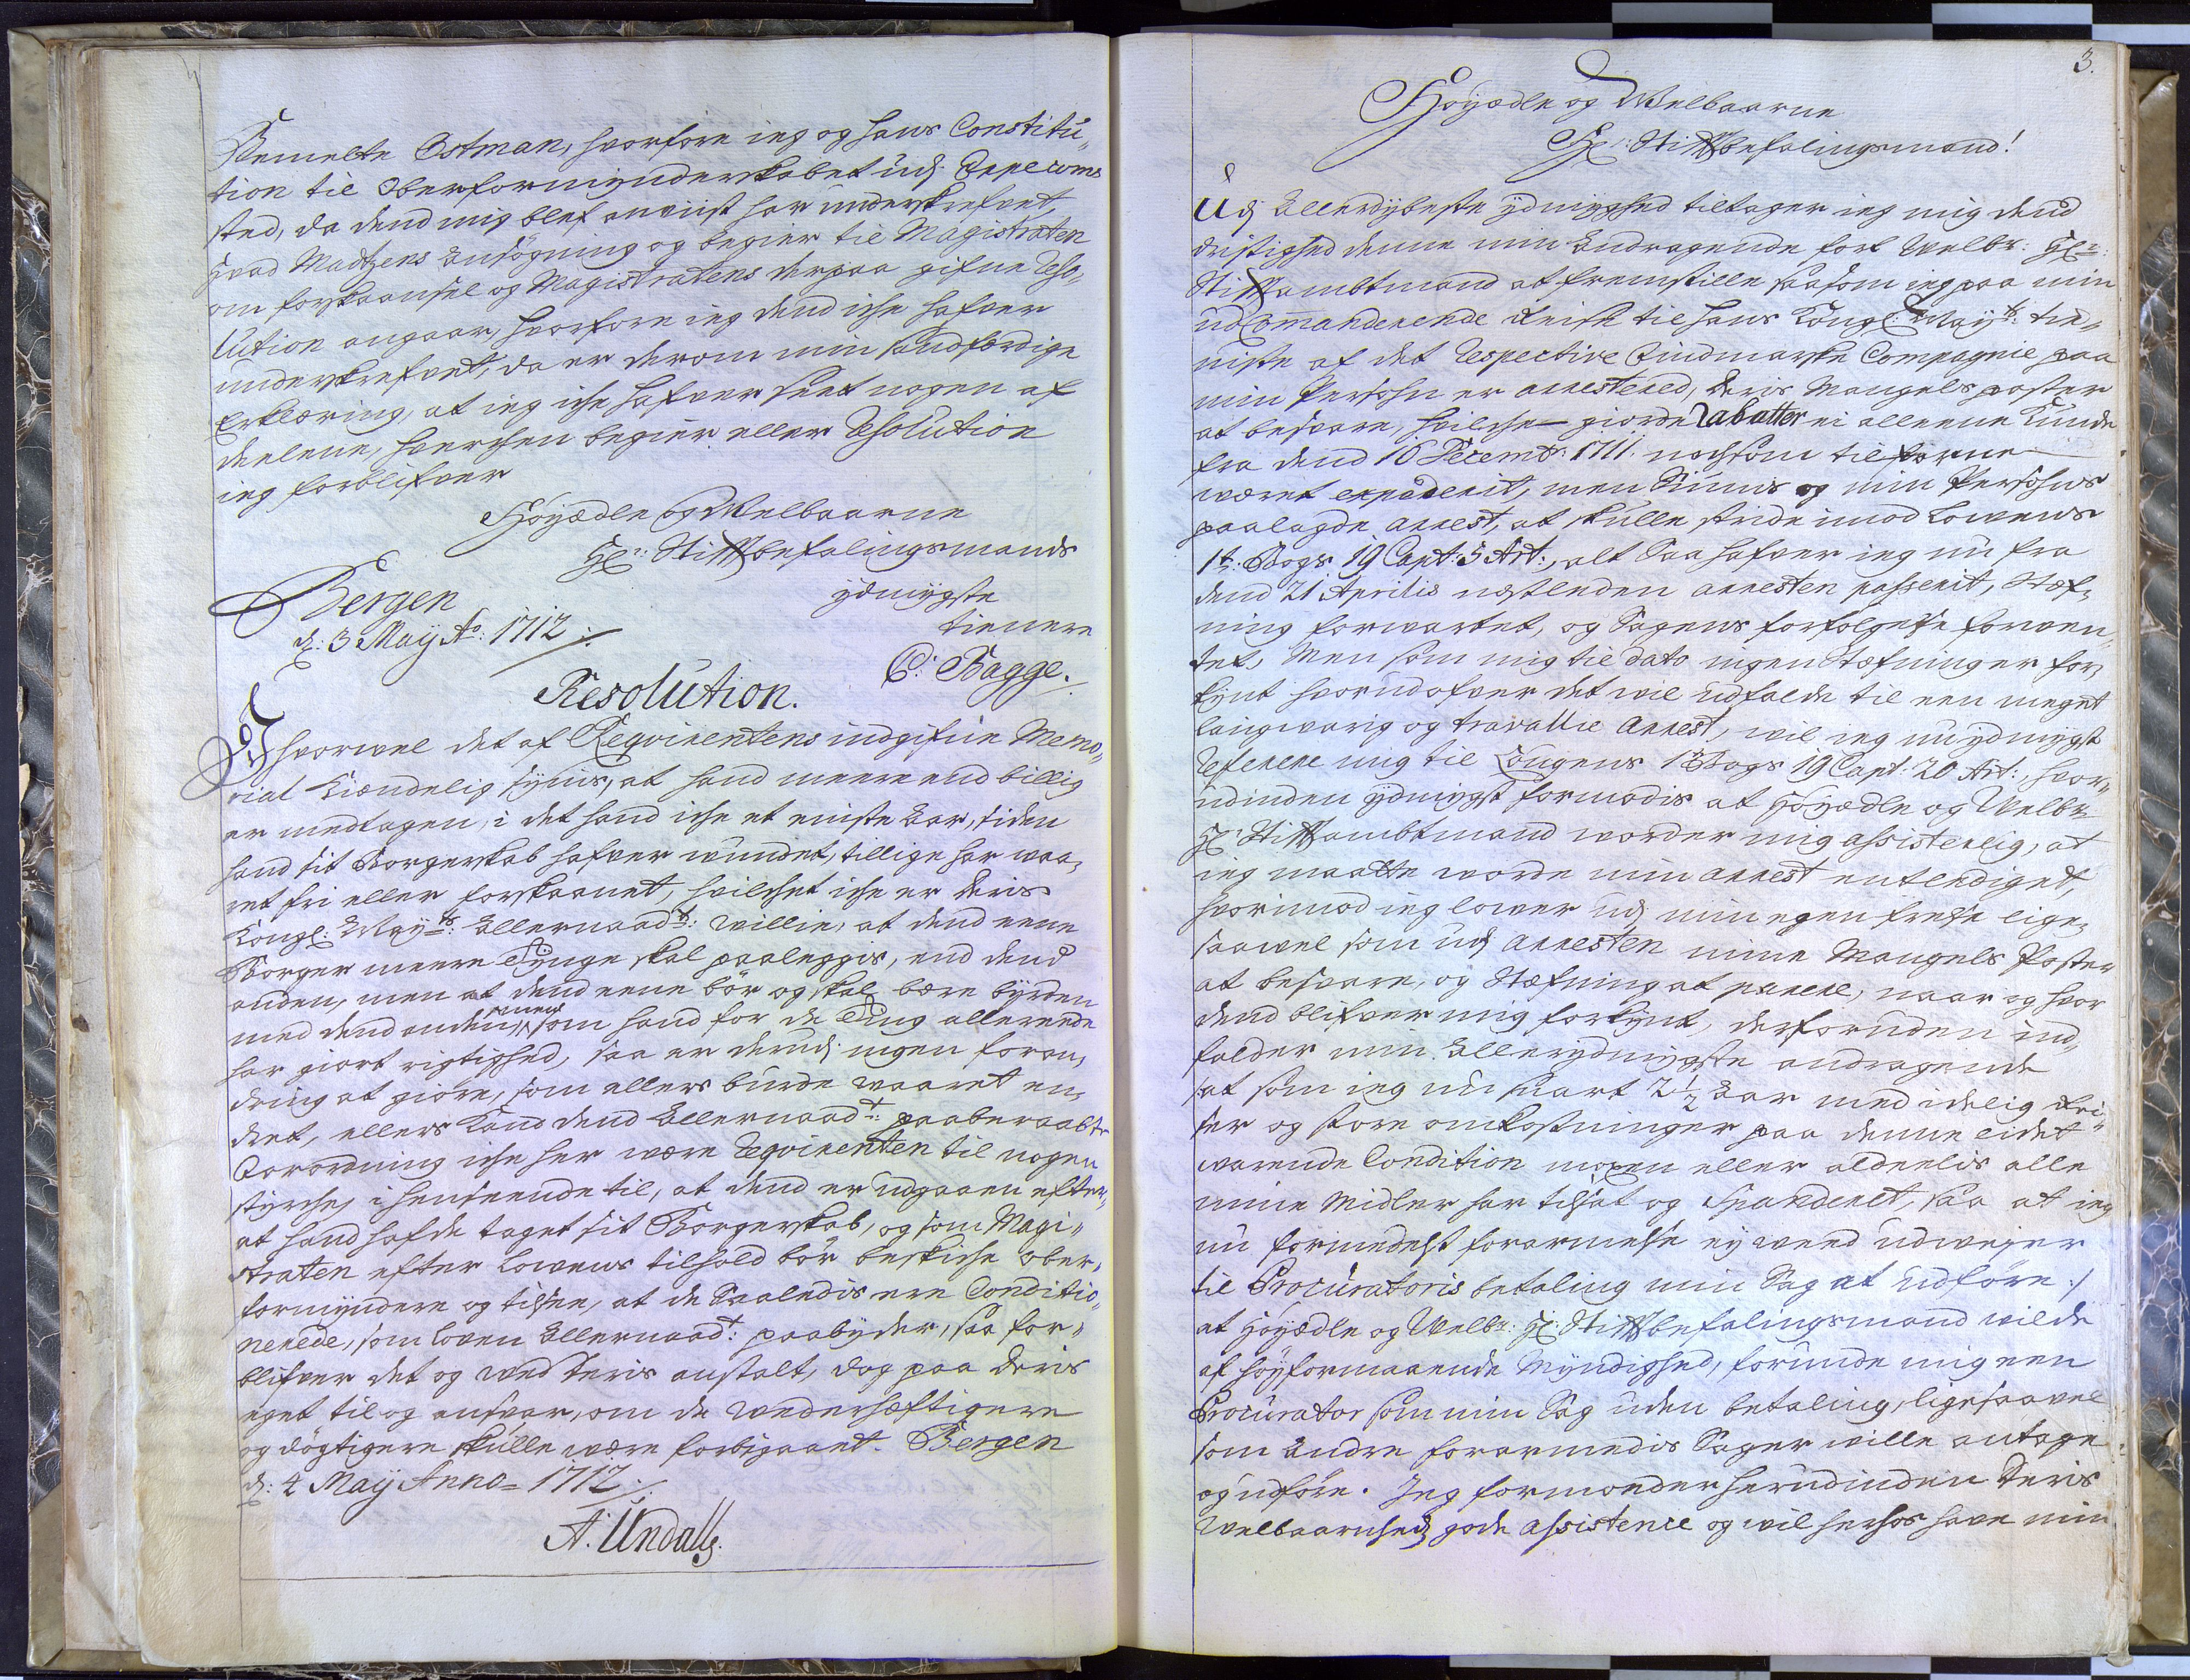 Bemelte Ostman, hvorfore ieg og hans Constitu„
tion til Oberformynderskabet udj
sted, da dend mig blef anviist har underskrefvet,
hvad Madtzens Ansögning og begier til Magistraten
om forskaansel og Magistratens derpaa gifne Reso„
lution angaar, hvorfore ieg dend iche hafver
underskrefvet, da er derom min sandfærdige
Erklæring, at ieg iche hafver seet nogen af
deelene, hverchen begier eller Resolution
ieg forblifver
Höyædle og Welbaarne
Hr: Stiftbefalingsmands
ydmygste
tienere
Bergen
d: 3 Maij Ao: 1712 ./.
C: Bagge.
Resolution.
Ihvorvel det af Reqvirentens indgifne Memo„
rial kiendelig synis, at hand meere end billig
er medtagen, i det hand iche et eeniste Aar, siden
hand sit Borgerskab hafver wundet, tillige har vaa„
ret fri eller forskaanet, hvilchet iche er Deris
Kongl: Mayts: Allernaadts: Willie, at dend eene
Borger meere Tynge skal paaleggis, end dend
anden, men at dend eene bör og skal bære byrden
med dend anden, som hand for de Ting allereede
har giort rigtighed, saa er derudj ingen foran„
dring at giöre, som ellers burde waaret en„
dret, ellers kand dend Allernaadt: paaberaabte
Forordning iche her være Reqvirenten til nogen
styrche, i henseende til, at dend er udgaaen efter
at hand hafde taget sit Borgerskab, og som Magi„
straten efter Lowens tilhold bör beskiche ober„
formyndere og tilsee, at de Saaledis ere Conditio„
nerede, som loven Allernaadt: paabyder, saa for„
blifver det og wed deris anstalt, dog paa deris
eget til og ansvar, om de wederhæftigere
og dögtigere skulle være forbigaaet. Bergen
d: 4 Maij Anno= 1712 ./.
A: Undall.
3.
Höyædle og Welbaarne
Hr: Stiftbefalingsmand!
Udj Allerdybeste ydmyghed tiltager ieg mig dend
dristighed denne min Andragende for Welbr: Hr:
Stiftambtmand at fremstille saasom ieg paa min
udCommanderende Reise til hans Kongl: Mayts: tie„
niste af det Respective Findmarske Compagnie paa
min Persohn er arresteret, deris Mangels poster
at besvare, hvilche giorde Rabatter ei alleene kunde
fra dend 16 Decembr: 1711. nochsom tilforne
været expederit, men Siunis og min Persohns
paalagde arrest, at skulle stride imod Lowens
1te: Bogs 19 Capt: 5 Art:, alt Saa hafver ieg nu fra
dend 21 Aprilis nestleden arresten passerit, Stef„
ning forwartet, og Sagens forfölgelse forven„
tet, Men som mig til dato ingen Stefninger for„
kynt hvorudofver det vil udfalde til een meget
langvarig og travallie Arrest, vil ieg nu ydmygst
Referere mig til Kongens 1te Bogs 19 Capt: 20 Art:, hvor„
udinden ydmygst formodis at Höyædle og Welbr:
Hr: Stiftambtmand worder mig assisterlig, at
ieg maatte worde min arrest entlediget,
hvorimod ieg lower udj min egen frelse lige„
saavel som udj arresten mine Mangels Poster
at besvare, og Stefning at parere, naar og hvor
dend blifver mig forkynt, desforuden ind„
falder min Allerydmygste andragende
at som ieg nu snart 2 1/2 Aar med idelig Rei„
ser og store omkostninger paa denne eidet
warende Condition mesten eller aldeelis alle
mine Midler har tilsat og Spanderet, saa at ieg
nu formedelst forarmelse ey weed udveyer
til Procuratoris betaling min Sag at udföre ./.
at Höyædle og Welbr: Hr: Stiftbefalingsmand vilde
af höyformaaende Myndighed, forunde mig een
Procurator som min Sag uden betaling, ligesaavel
som Andre forarmedis Sager wille antage
og udföre. Ieg formoder herudinden Deris
Welbaarnhedz gode assistence og vil herhos have min